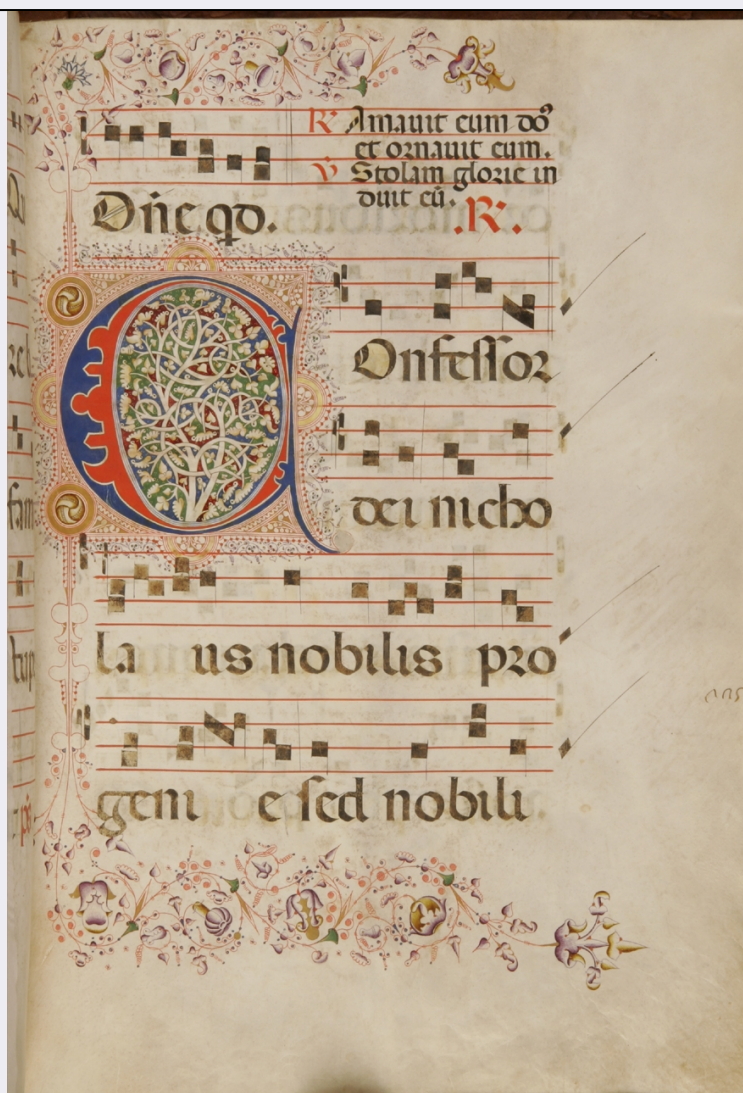 ℟ Amauit eum do᷒
et ornauit eum.
℣ Stolam glorie in
duit eū. .℟.
Dn̄e qd.
COnfessor
dei nicho
la us nobilis pro
geni e sed nobili